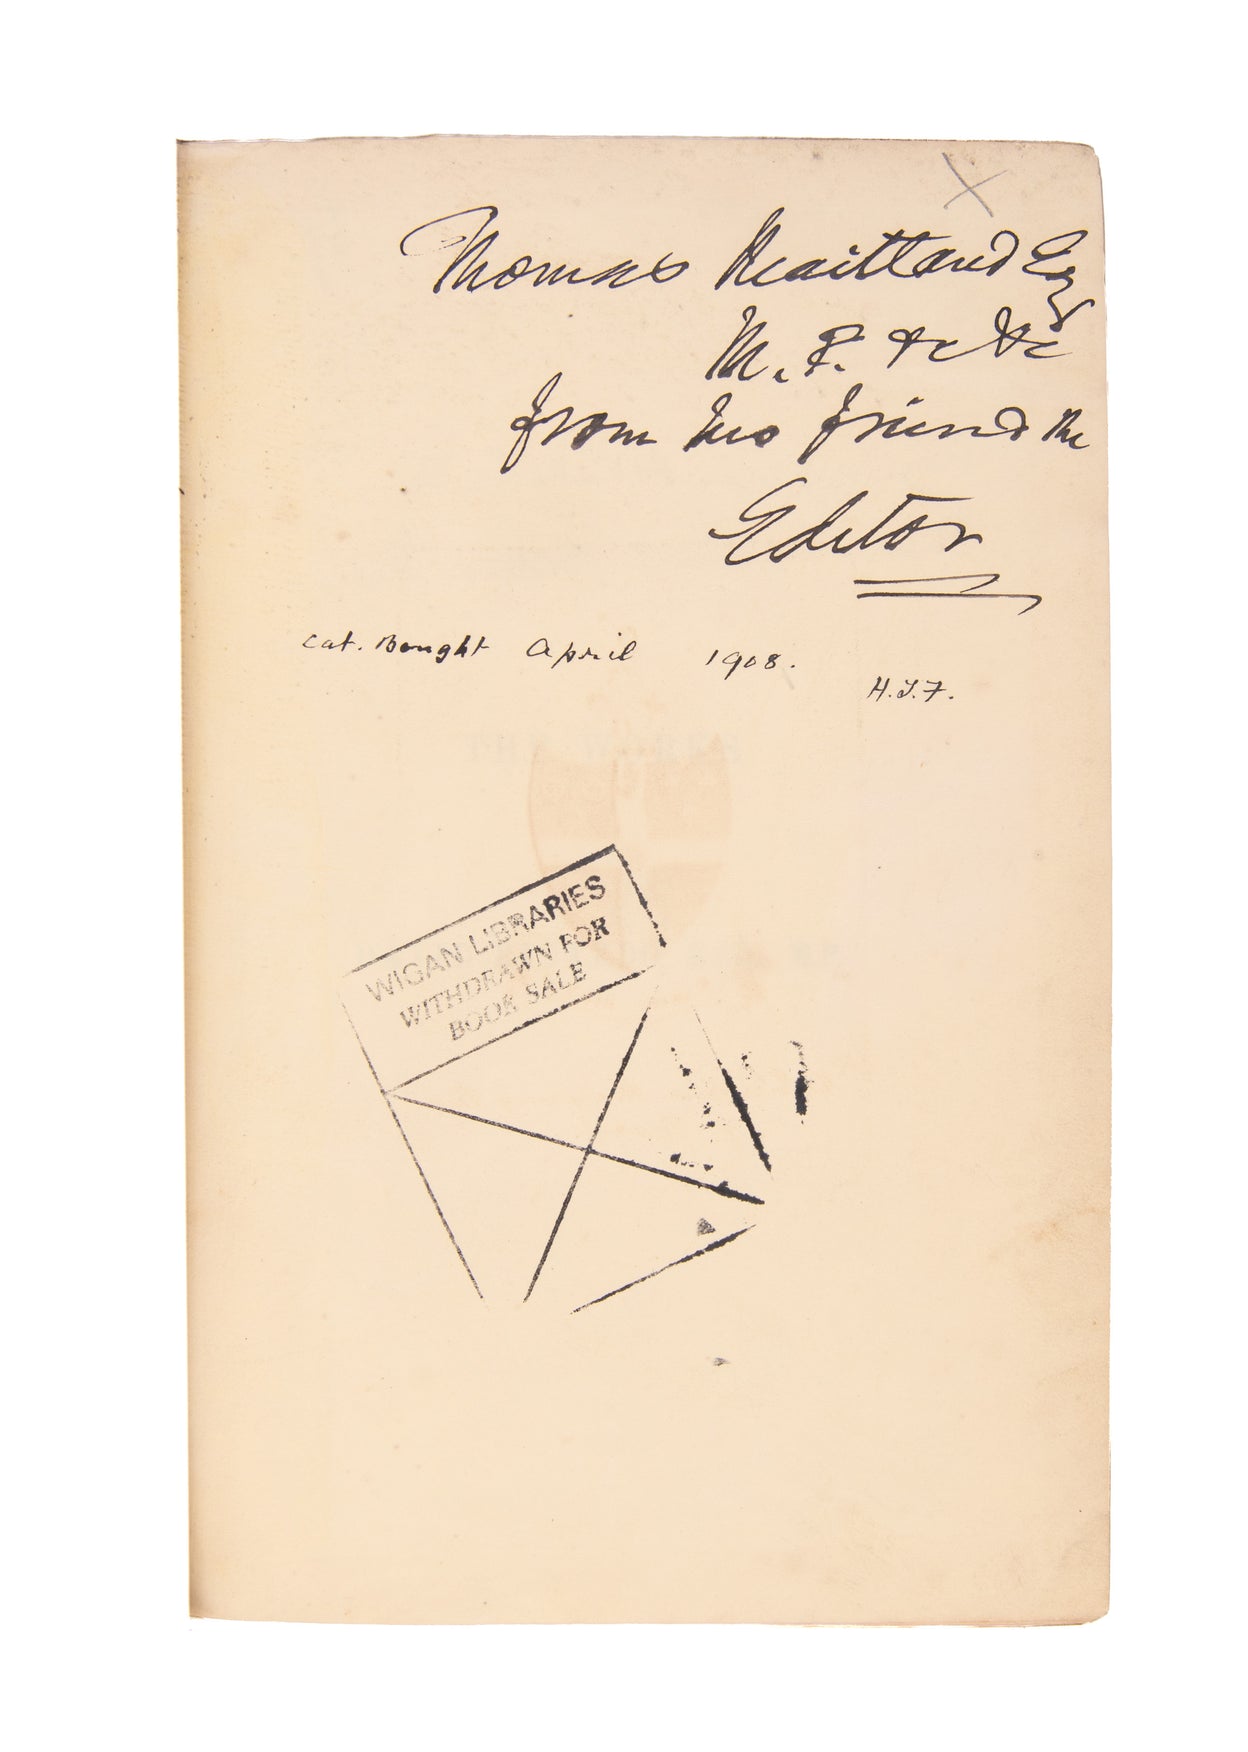 Thomas Maitland Esq
M. P. &c &c
from his friend the
Editor
Cat. Bought April 1908.
H.J.F.
WIGAN LIBRARIES
WITHDRAWN FOR
BOOK SALE